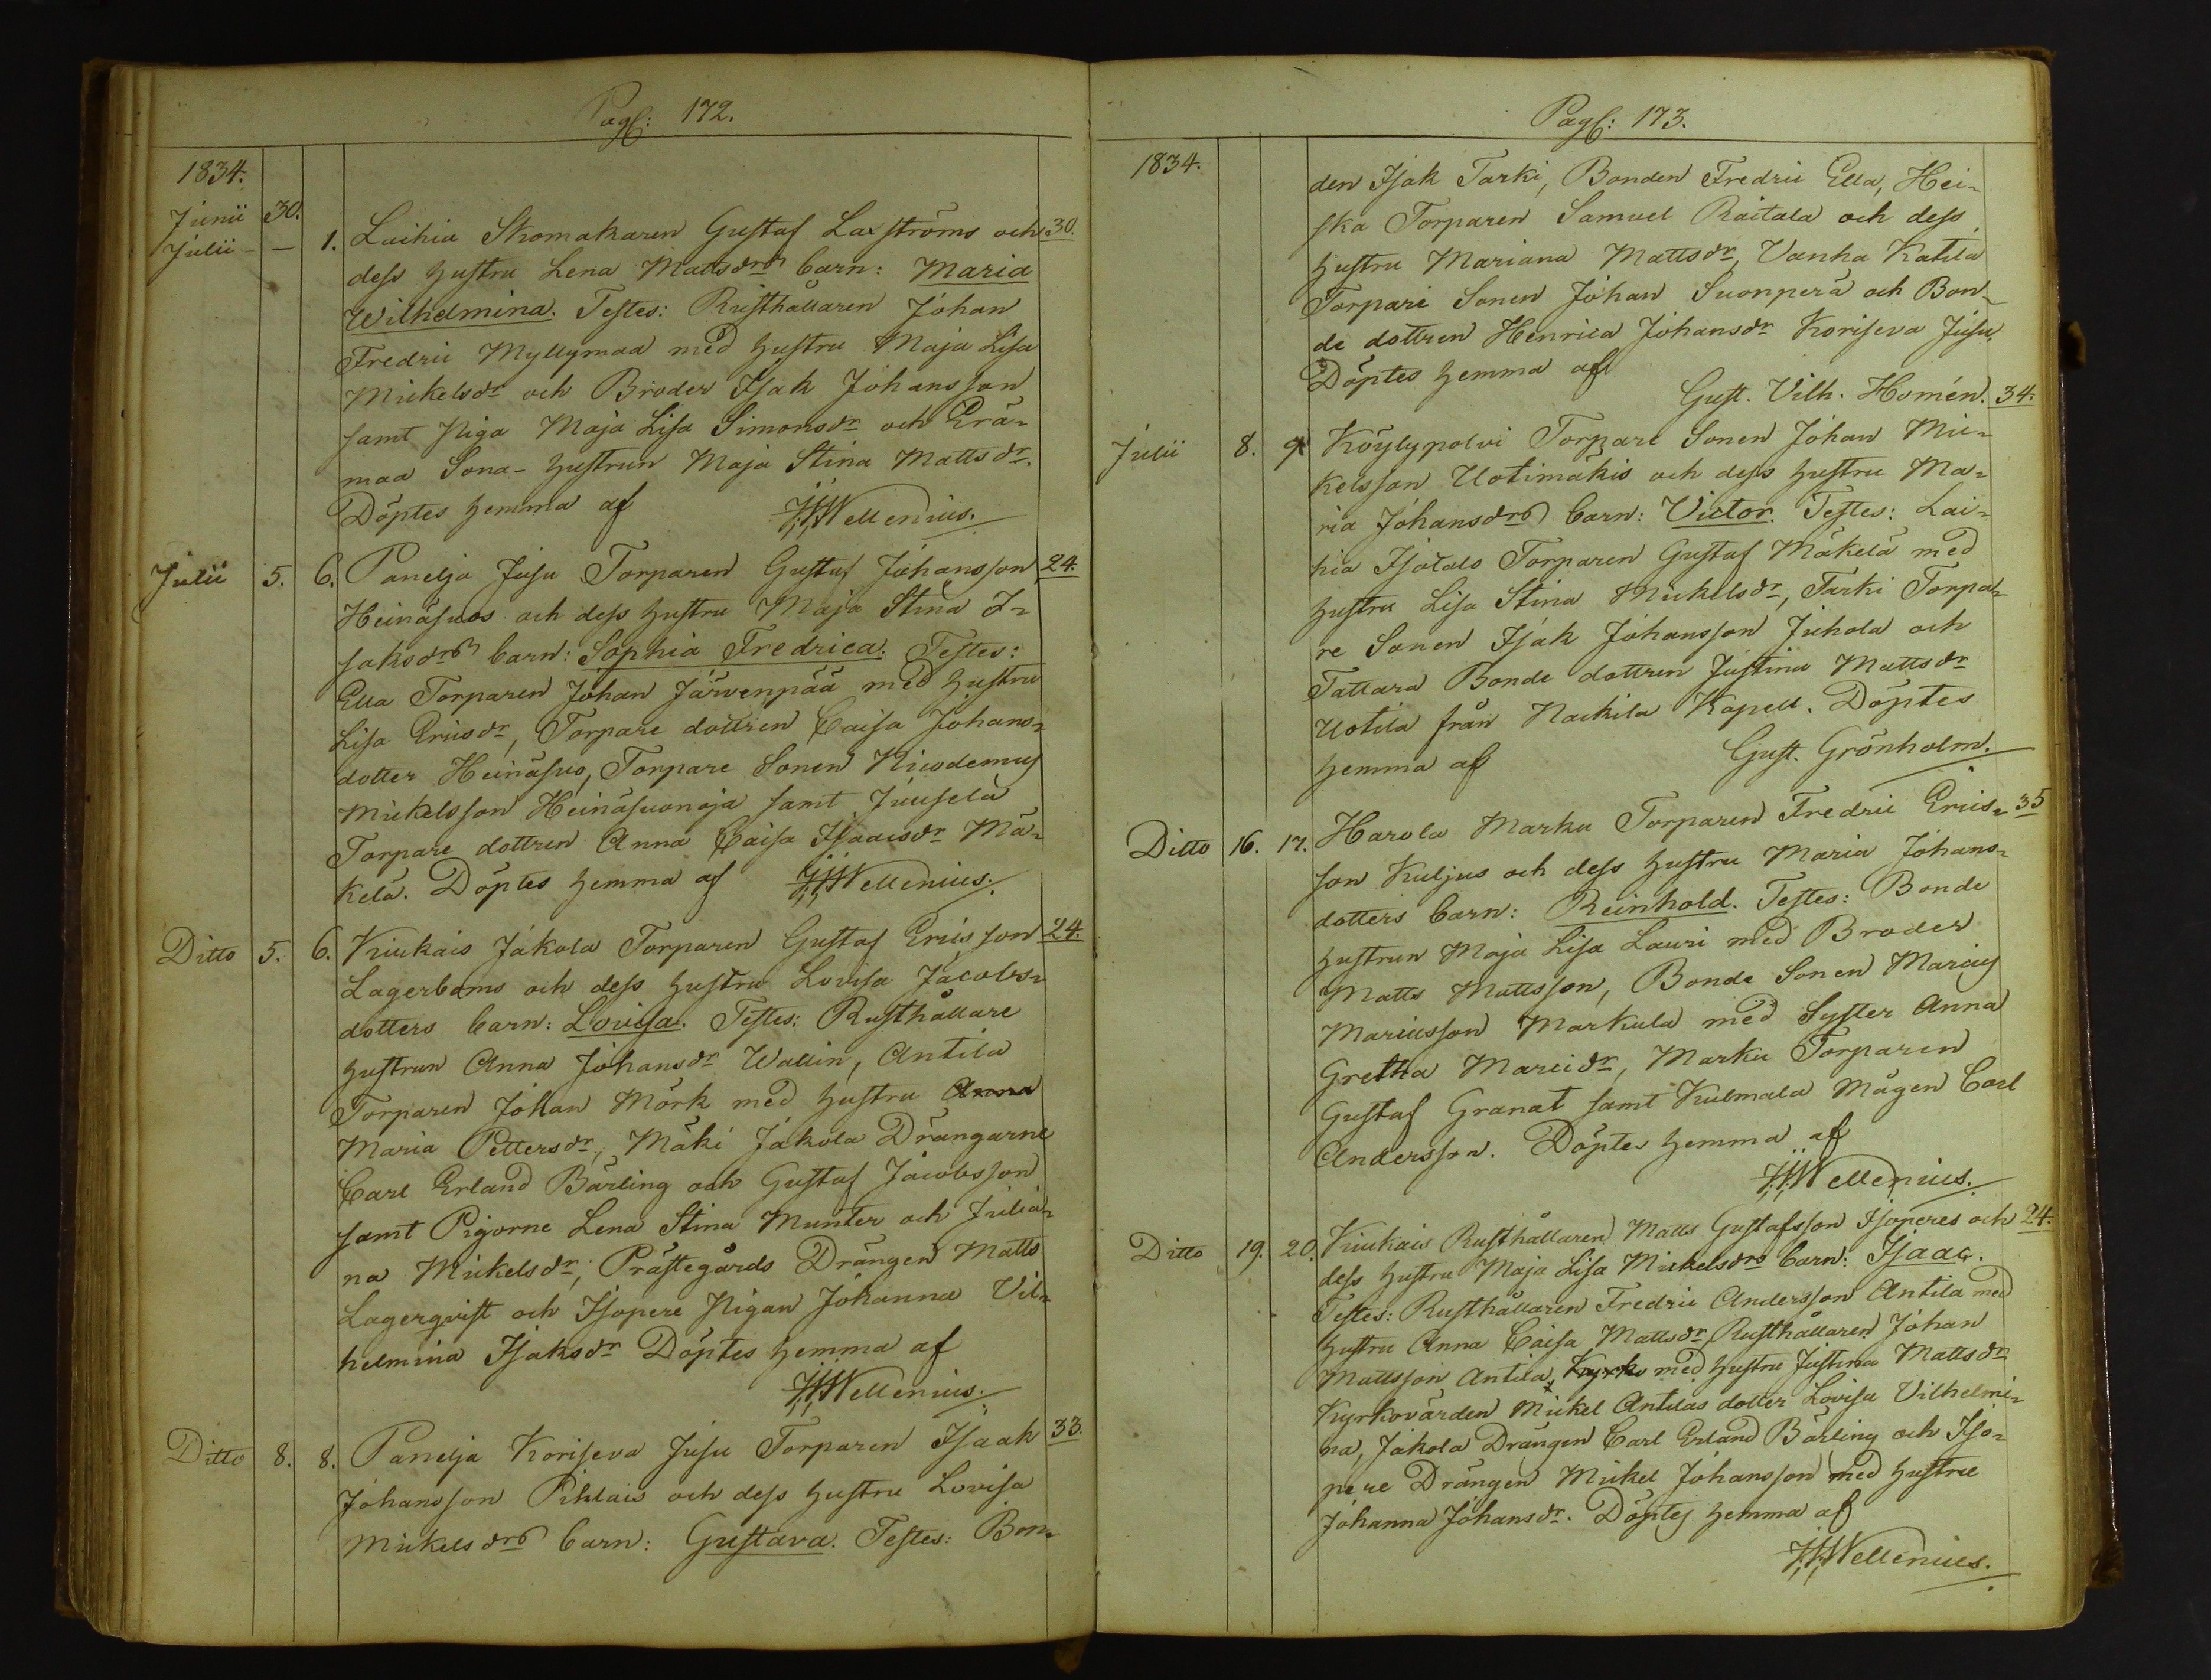 Pag: 172.
1834.
Junii 30.
Julii - — 1. Laihia Skomakaren Gustaf Laxströms och 30.
dess hustru Lena Mattsdrs barn: Maria
Wilhelmina. Testes: Rusthållaren Johan
Fredric Myllymaa med hustru Maja Lisa
Mickelsdr och Broder Isak Johansson
samt Piga Maja Lisa Simonsdr och Erä-
maa Sona-hustrun Maja Stina Mattsdr.
Döptes hemma af Wellenius.
Julii 5. 6. Panelja Jusu Torparen Gustaf Johansson 24.
Heinäsuos och dess hustru Maja Stina I-
saksdrs barn: Sophia Fredrica. Testes:
Ella Torparen Johan Järvenpää med hustru
Lisa Ericsdr, Torpare dottren Caisa Johans-
dotter Heinäsuo, Torpare Sonen Nicodemus
Mickelsson Heinäsuonoja samt Juusela
Torpare dottren Anna Caisa Isaacsdr Mä-
kelä. Döptes hemma af Wellenius.
Ditto 5. 6. Kiukais Jakola Torparen Gustaf Ericsson 24.
Lagerboms och dess hustru Lovisa Jacobs-
dotters barn: Lovisa. Testes: Rusthållare
hustrun Anna Johansdr Wallin, Antila
Torparen Johan Mörk med hustru Anna
Maria Pettersdr, Mäki Jakola Drängarne
Carl Erland Bärling och Gustaf Jacobsson
samt Pigorne Lena Stina Munter och Julia-
na Mickelsdr, Prästegårds Drängen Matts
Lagerqvist och Isopere Pigan Johanna Vil-
helmina Isaksdr Döptes hemma af
Wellenius.
Ditto 8. 8. Panelja Koriseva Jusu Torparen Isaak 33.
Johansson Pihlais och dess hustru Lovisa
Mickelsdrs barn: Gustava. Testes: Bon-
Pag: 173.
1834.
den Isak Tarki, Bonden Fredric Ella, Hei-
ska Torparen Samuel Raitala och dess
hustru Mariana Mattsdr, Vanha Katila
Torpare Sonen Johan Suonperä och Bon-
de dottren Henrica Johansdr Koriseva Jusu.
Döptes hemma af
Gust. Vilh. Homén. 34.
Julii 8. 9. Köylypolvi Torpare Sonen Johan Mic-
kelsson Uotimäkis och dess hustru Ma-
ria Johansdrs barn: Victor. Testes: Lai-
hia Isotalo Torparen Gustaf Mäkelä med
hustru Lisa Stina Mickelsdr, Tarki Torpa-
re Sonen Isak Johansson Juhola och
Tattara Bonde dottren Justina Mattsdr
Uotila från Nackila Kapell. Döptes
hemma af Gust. Grönholm.
Ditto 16. 17. Harola Marku Torparen Fredric Erics- 35
son Kuljus och dess hustru Maria Johans-
dotters barn: Reinhold. Testes: Bonde
hustrun Maja Lisa Lauri med Broder
Matts Mattsson, Bonde Sonen Marcus
Marcusson Markula med Syster Anna
Gretha Marcidr, Marku Torparen
Gustaf Granat samt Kulmala Mågen Carl
Andersson. Döptes hemma af
Wellenius.
Ditto 19. 20. Kiukais Rusthållaren Matts Gustafsson Isoperes och 24.
dess hustru Maja Lisa Mickelsdrs barn: Isaac.
Testes: Rusthållaren Fredric Andersson Antila med
hustru Anna Caisa Mattsdr, Rusthållaren Johan
Mattsson Antila, Kyrko med hustru Justina Mattsdr
Kyrkovärden Mickel Antilas dotter Lovisa Vilhelmi-
na, Jakola Drängen Carl Erland Bärling och Iso-
pere Drängen Mickel Johansson med hustru
Johanna Johansdr. Döptes hemma af
Wellenius.